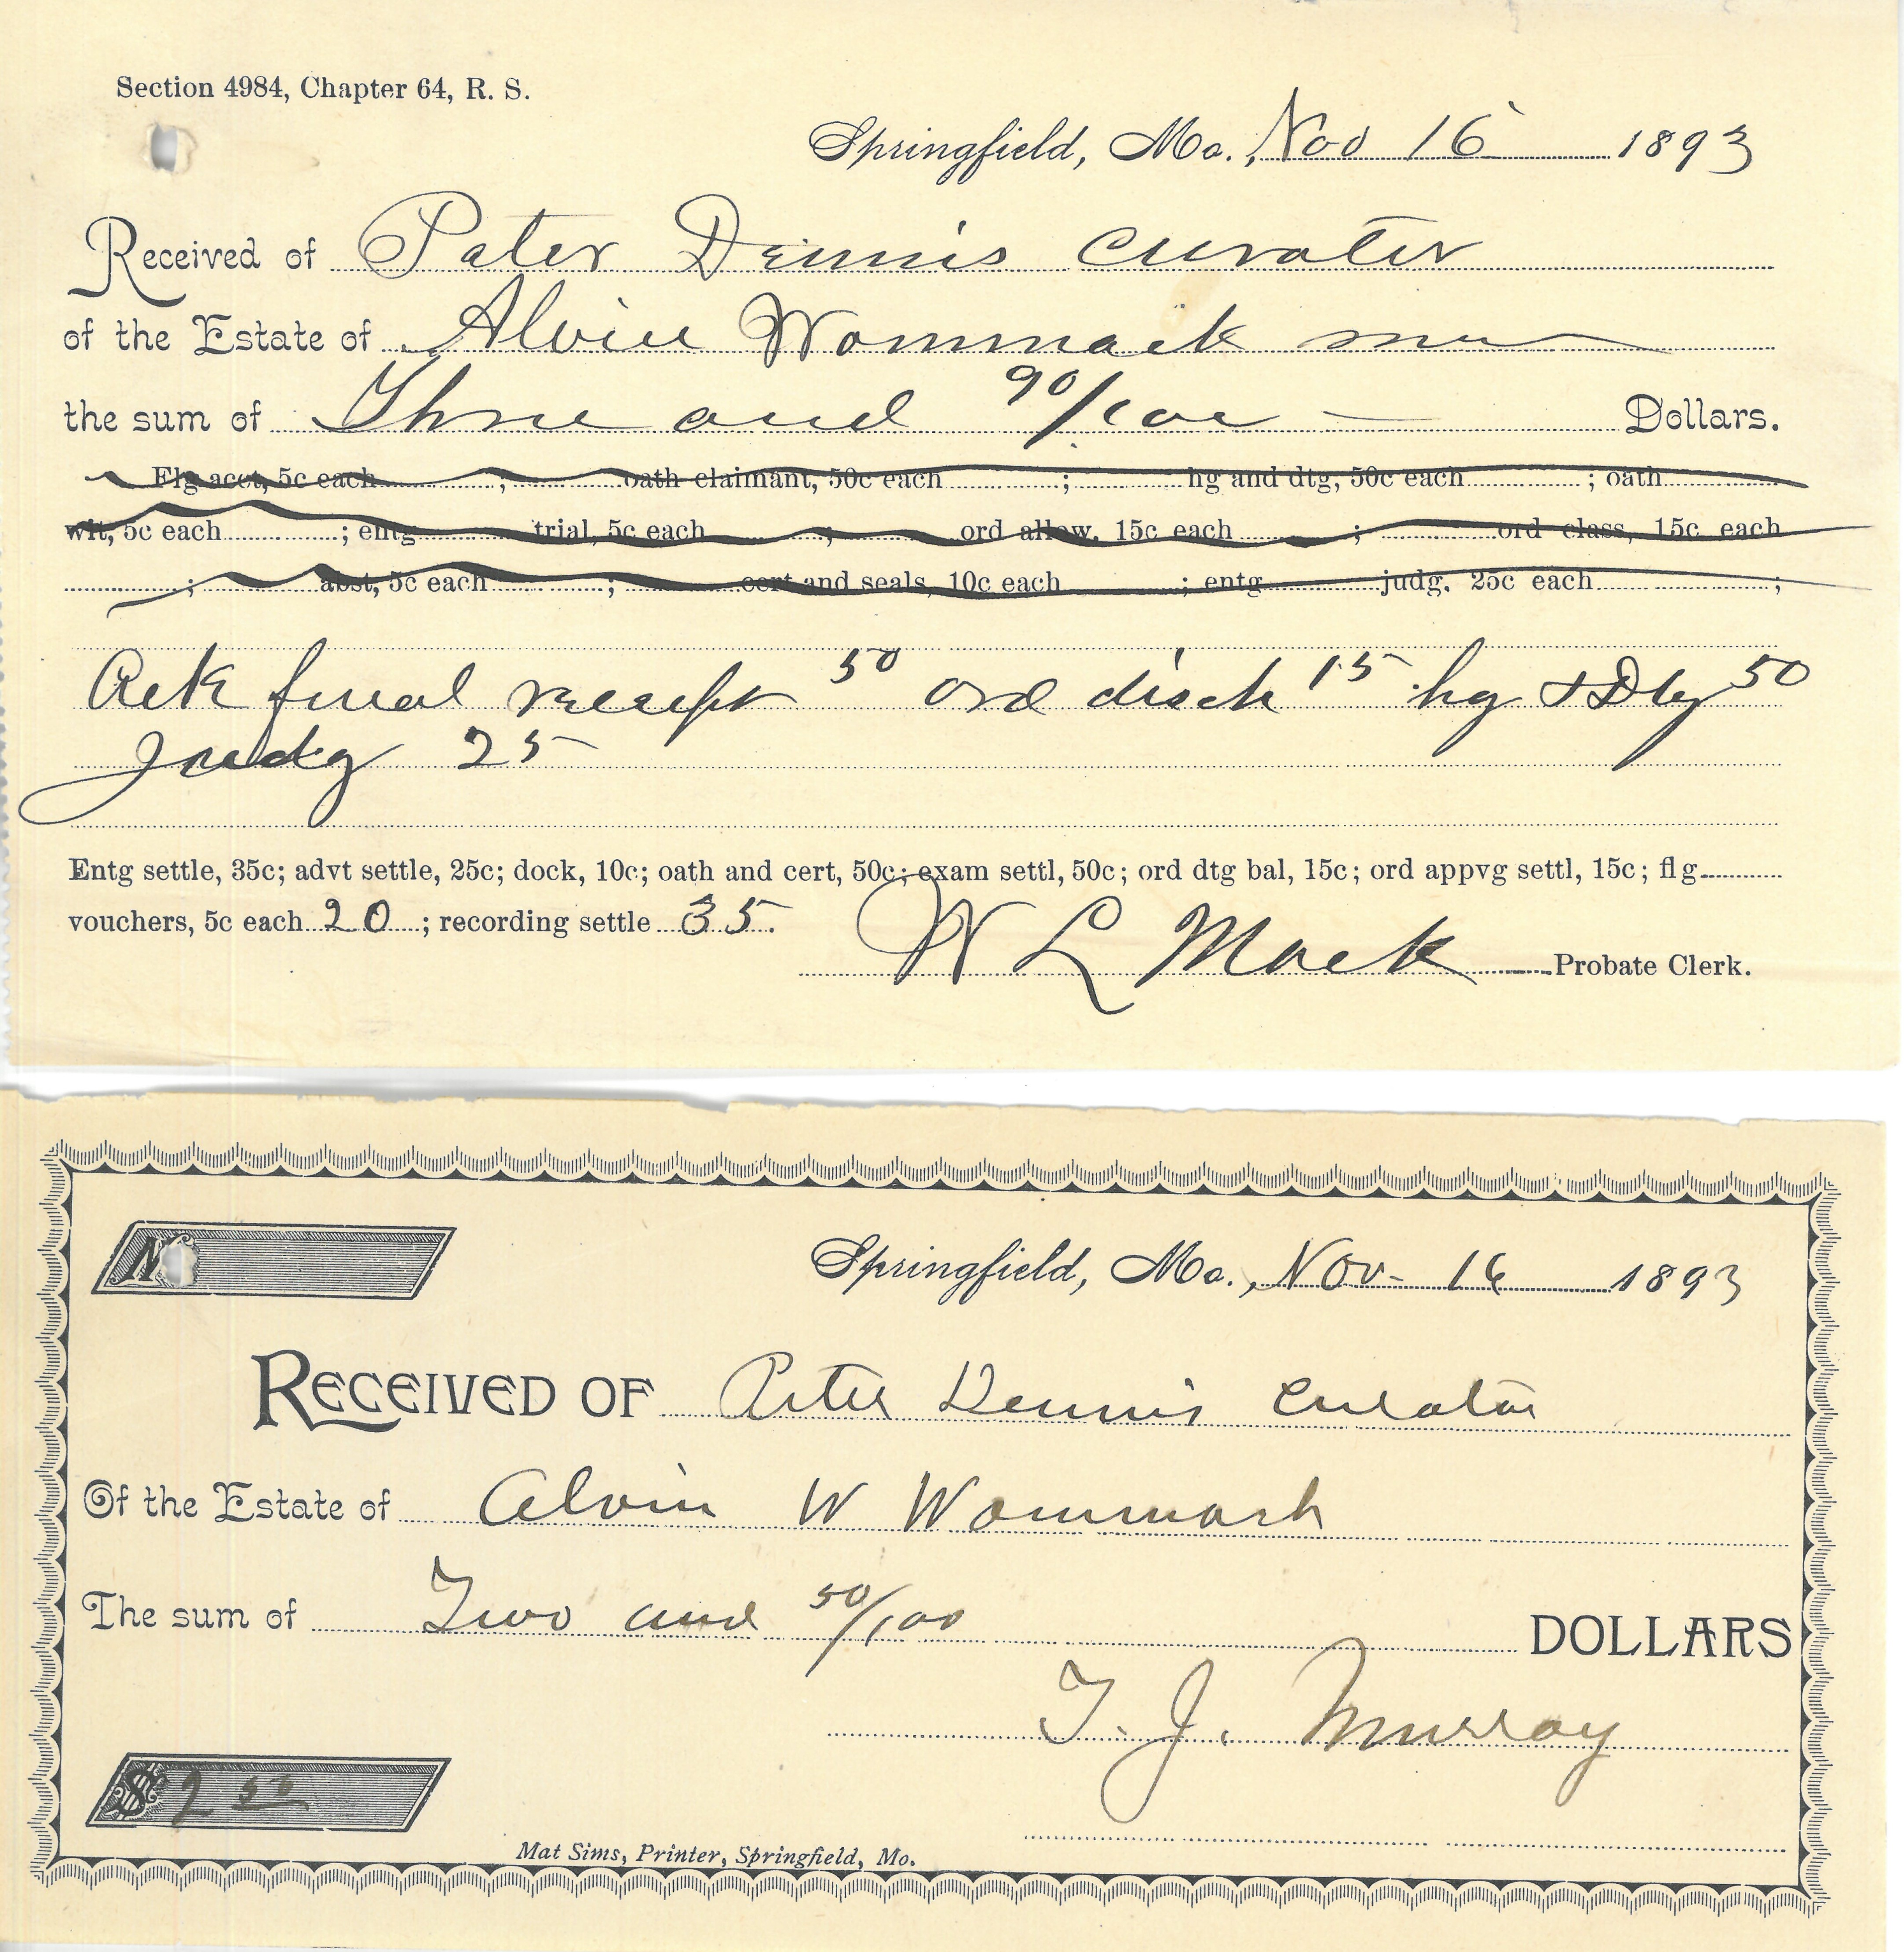 Section 4984, Chapter 64, R. S.
Springfield, Mo., Nov 16 1893
Received of Peter Dennis curator
of the Estate of Alvin Wommack
the sum of Three and 90/100 Dollars.
Flg acct, 5c each ; oath claimant, 50c each ; hg and dtg, 50c each ; oath
wit, 5c each ; entg trial, 5c each ; ord allow, 15c each ; ord class, 15c each
; abst, 5c each ; cert and seals, 10c each ; entg judg, 25c each ;
Ack final receipt 50 ord disch 15 hg & Dtg 50
Judg 25
Entg settle, 35c; advt settle, 25c; dock, 10c; oath and cert, 50c; exam settl, 50c; ord dtg bal, 15c; ord appvg settl, 15c; flg
vouchers, 5c each 20 ; recording settle 35.
W L Mack Probate Clerk.
Springfield, Mo., Nov- 16 1893
RECEIVED OF Peter Dennis Curator
Of the Estate of Alvin W Wommack
The sum of Two and 50/100 DOLLARS
T. J. Murray
$ 2 50
Mat Sims, Printer, Springfield, Mo.